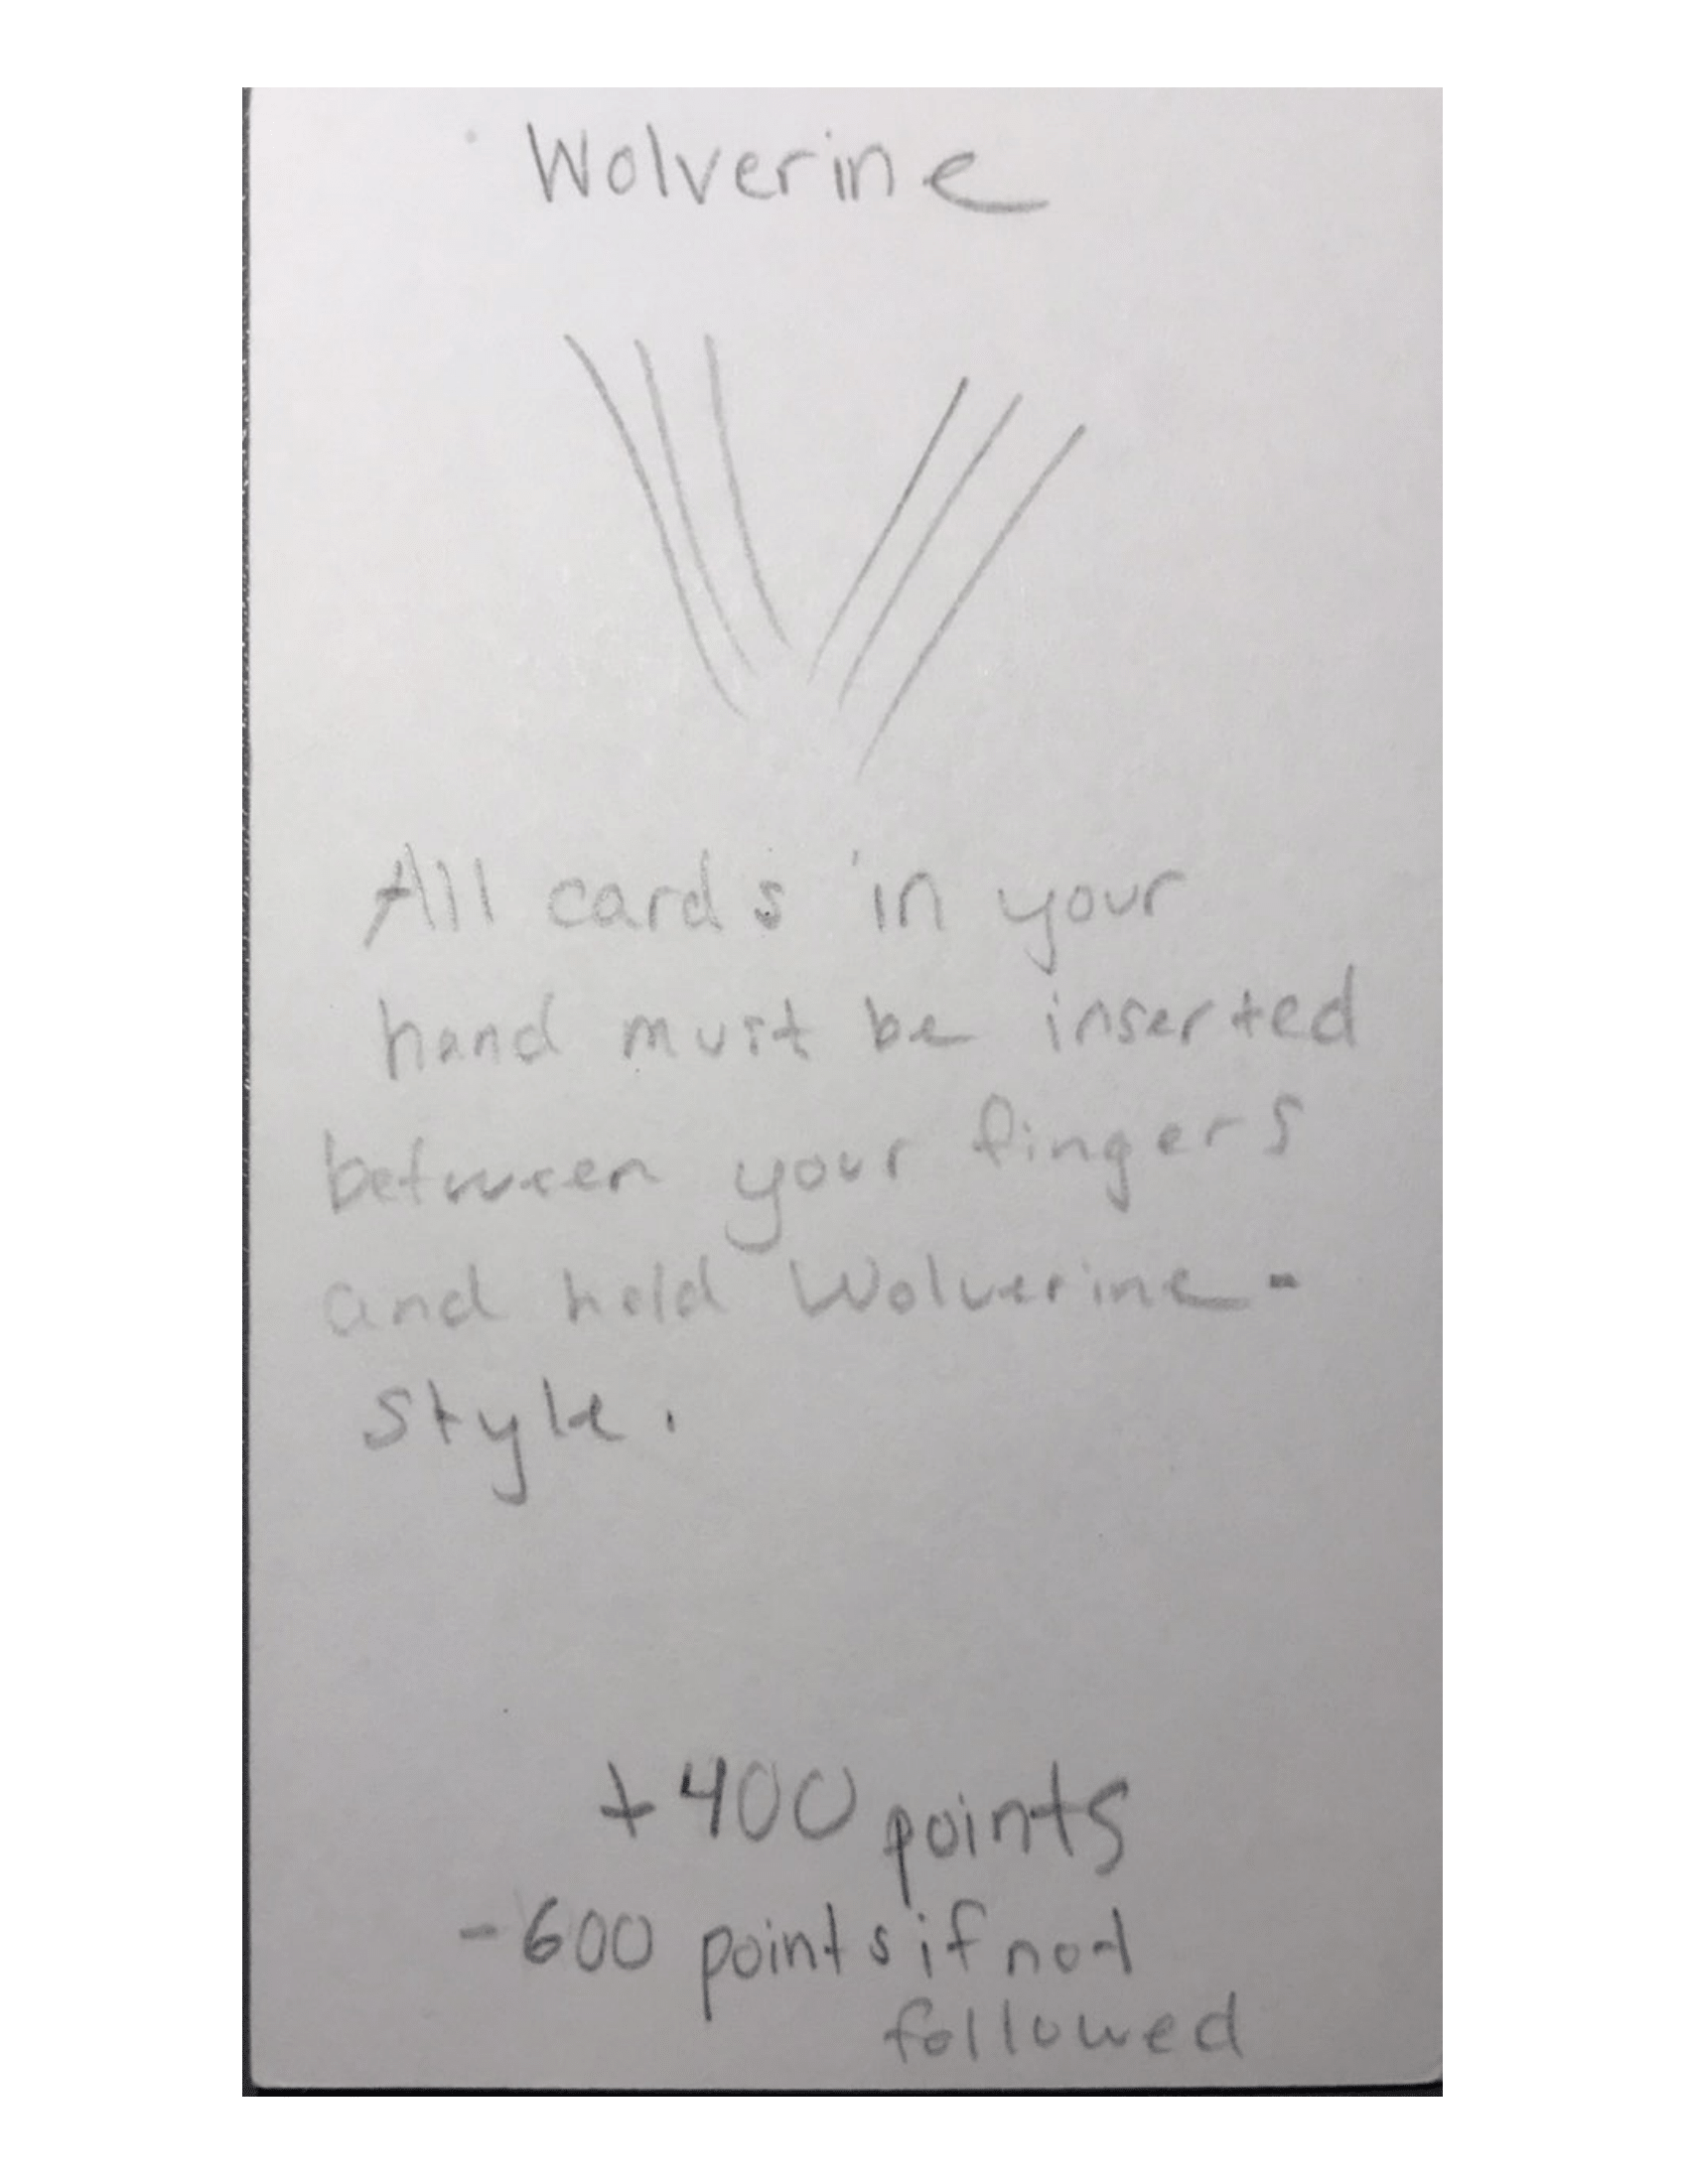 Wolverine
All cards in your
hand must be inserted
between your fingers
and hold Wolverine-
style.
+400 points
-600 points if not
followed